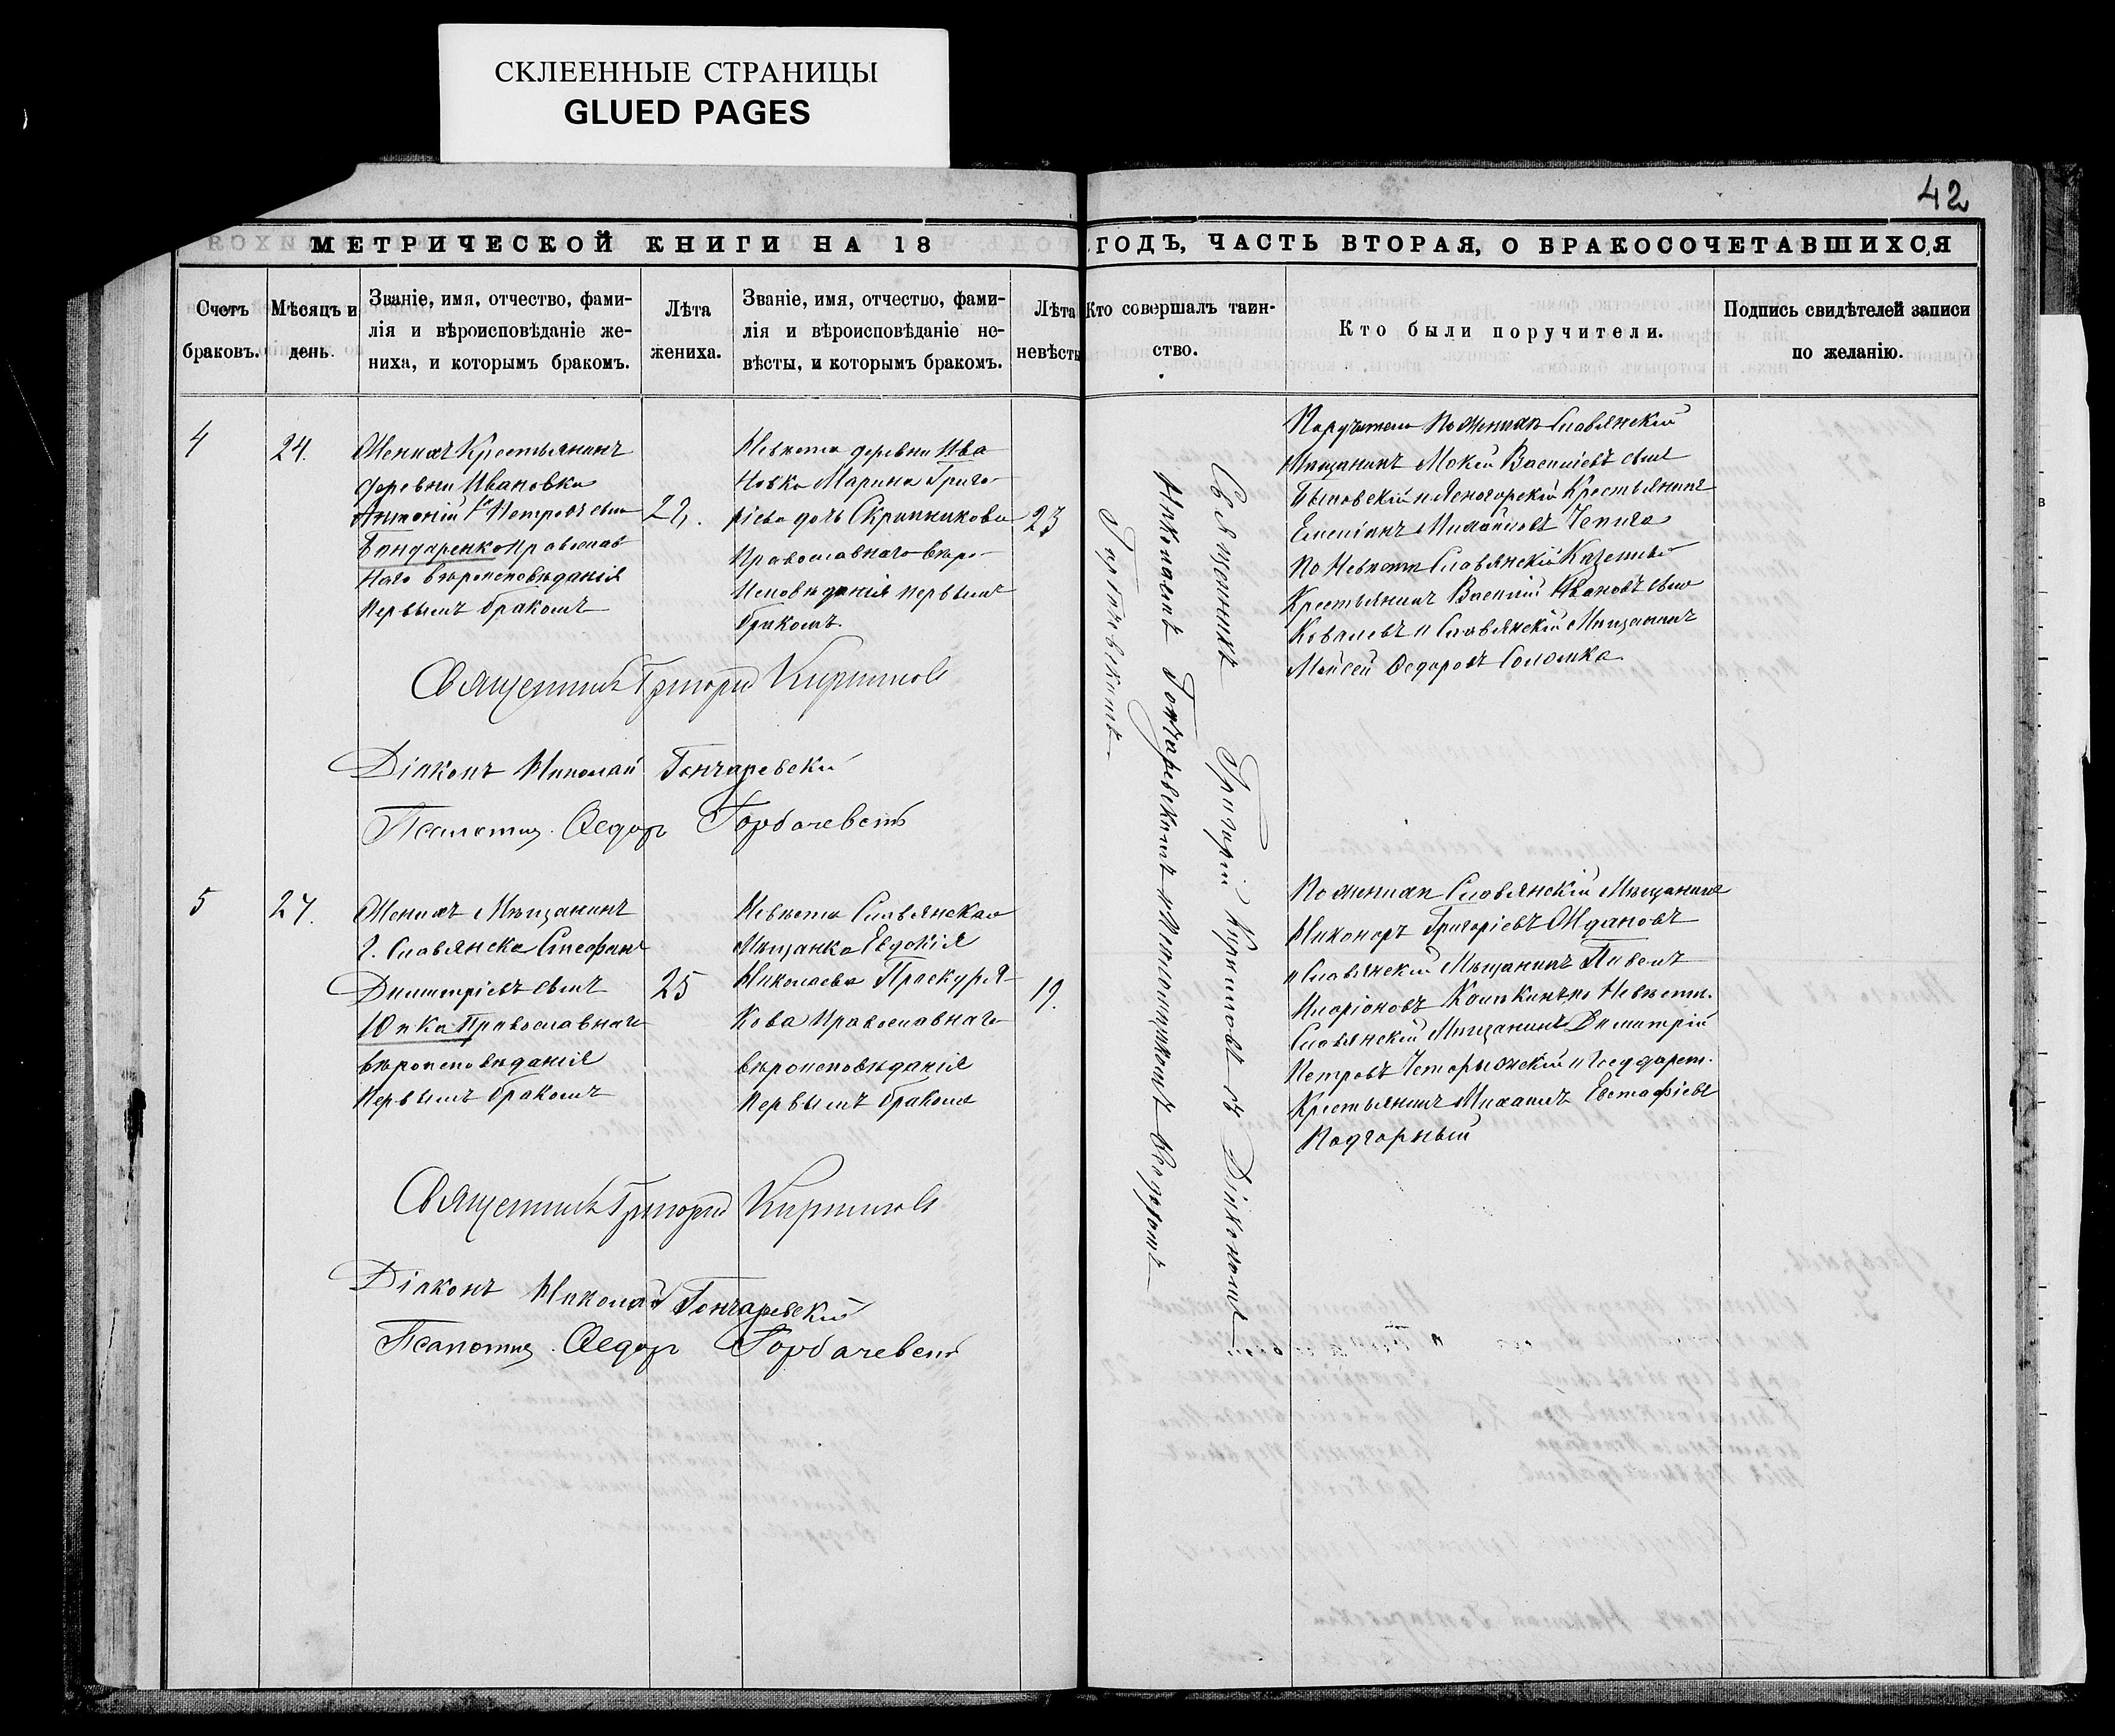 СКЛЕЕННЫЕ СТРАНИЦЫ
GLUED PAGES
42
МЕТРИЧЕСКОЙ КНИГИ НА 18
ГОДЪ, ЧАСТЬ ВТОРАЯ, О БРАКОСОЧЕТАВШИХСЯ
Счетъ
браковъ.
Мѣсяцъ и
день.
Званіе, имя, отчество, фами-
лія и вѣроисповѣданіе же-
ниха, и которымъ бракомъ.
Лѣта
жениха.
Званіе, имя, отчество, фами-
лія и вѣроисповѣданіе не-
вѣсты, и которымъ бракомъ.
Лѣта
невѣсты
Кто совершалъ таин-
ство.
Кто были поручители.
Подпись свидѣтелей записи
по желанію.
4
24.
Женихъ Крестьянинъ
деревни Ивановки
Антоній Петровъ сынъ
Бондаренко православ
наго вѣроисповѣданія
первымъ бракомъ
Невѣста деревни Ива
новки Марина Григо-
рiева дочь Скрипникова
православнаго вѣро-
исповѣданія первымъ
бракомъ.
23
Поручители по женихѣ Славянскій
Мѣщанинъ Мокей Васильевъ сынъ
Крестьянинъ
Михайловъ Чепига
по невѣстѣ Славянскій
Крестьянинъ Василій Ивановъ сынъ
Ковалевъ и Славянскій Мѣщанинъ
Моисей Ѳедоровъ Соломка
Священникъ Григорій Кириловъ
Діаконъ Николай Гончаревскій
Псаломщ. Ѳедоръ Горбачевскій
Священникъ Григорій Кириловъ съ Діакономъ
Николаемъ Гончаревскимъ и Псаломщикомъ Ѳедоромъ
Горбачевскимъ
5
27.
Женихъ Мѣщанинъ
г. Славянска Стефанъ
Димитріевъ сынъ
Юпка Православнаго
вѣроисповѣданія
первымъ бракомъ
25
Невѣста Славянская
Мѣщанка Евдокія
Николаева Проскуря-
кова Православнаго
вѣроисповѣданія
первымъ бракомъ
19.
По женихѣ Славянскій Мѣщанинъ
Никоноръ Григоріевъ Ждановъ
и Славянскій Мѣщанинъ Павелъ
Иларіоновъ по невѣстѣ.
Славянскій Мѣщанинъ Димитрій
Петровъ и Государст.
Крестьянинъ Михаилъ Евстафіевъ
Подгорный
Священникъ Григорій Кириловъ
Діаконъ Николай Гончаревскій
Псаломщ. Ѳедоръ Горбачевскій